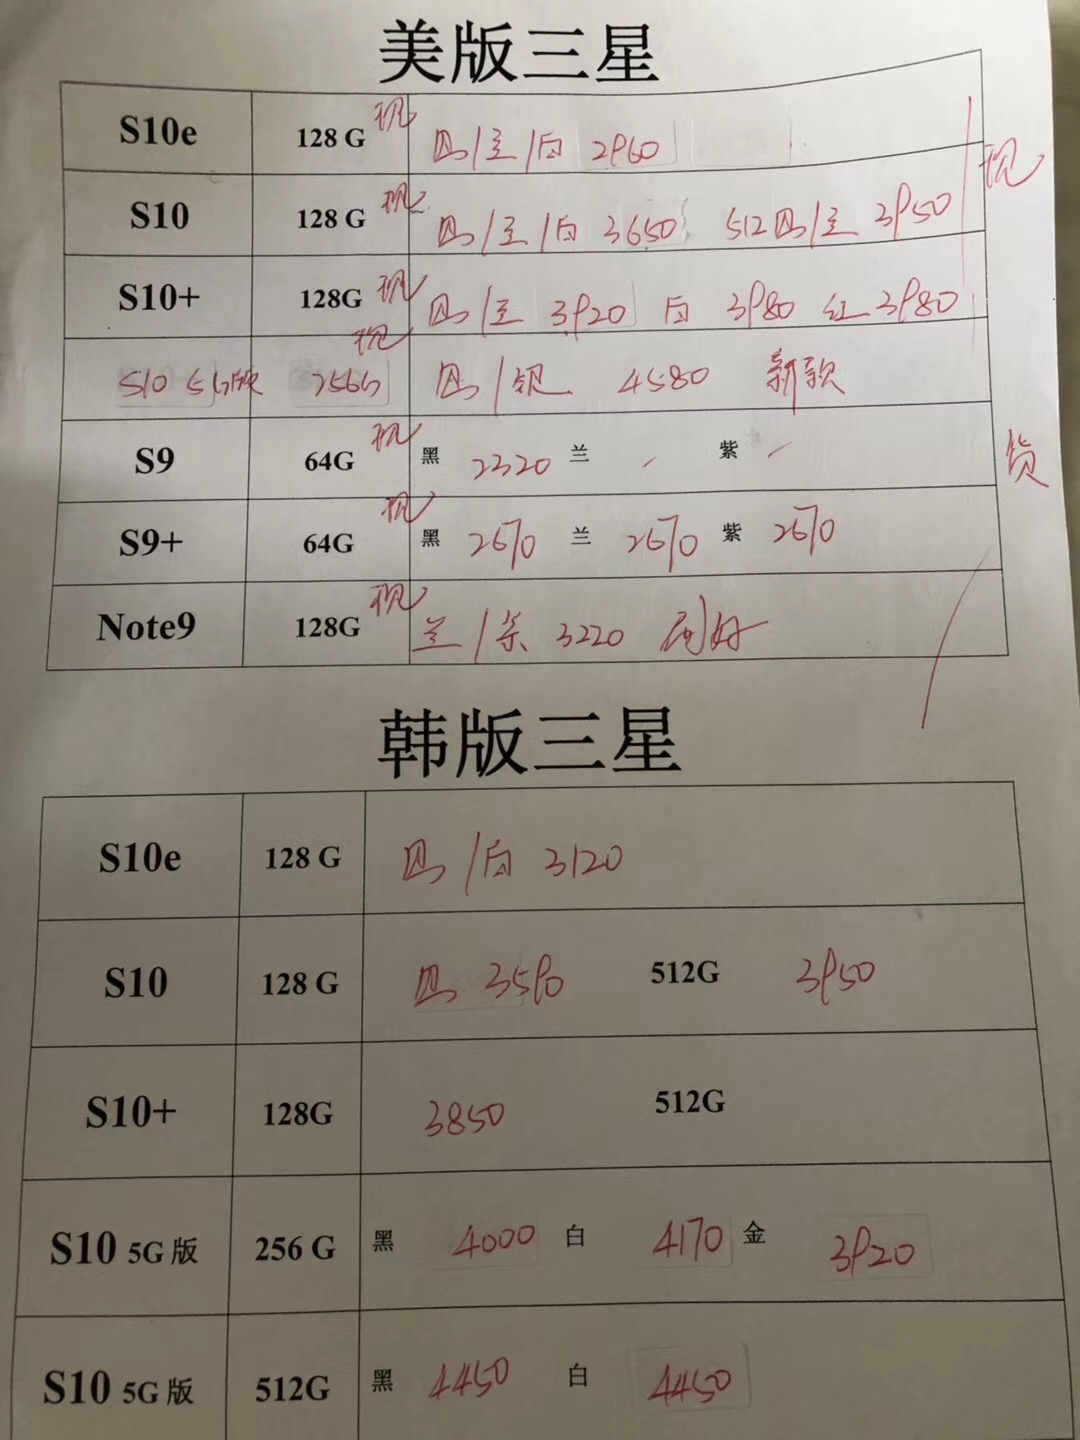 美版三星
S10e 128 G 现 黑/兰/白 2960
S10 128 G 现 黑/兰/白 3650 512黑/兰 3950
S10+ 128G 现 黑/兰 3920 白 3980 红 3980
S10 5G版 256G 现 黑/银 4580 新款
S9 64G 现 黑 2320 兰 紫
S9+ 64G 现 黑 2670 兰 2670 紫 2670
Note9 128G 现 兰/紫 3220
现货
韩版三星
S10e 128 G 黑/白 3120
S10 128 G 黑 3590 512G 3950
S10+ 128G 3850 512G
S10 5G 版 256 G 黑 4000 白 4170 金 3920
S10 5G 版 512G 黑 4450 白 4450